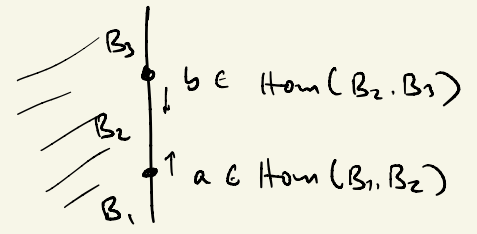 B₃
b ∈ Hom(B₂, B₃)
B₂
a ∈ Hom(B₁, B₂)
B₁